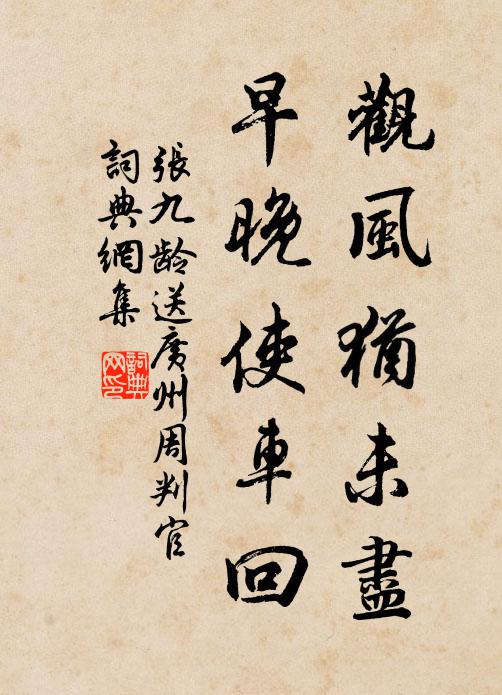 觀風猶未盡
早晚使車回
張九齡送廣州周判官
詞典網集
詞典
网印